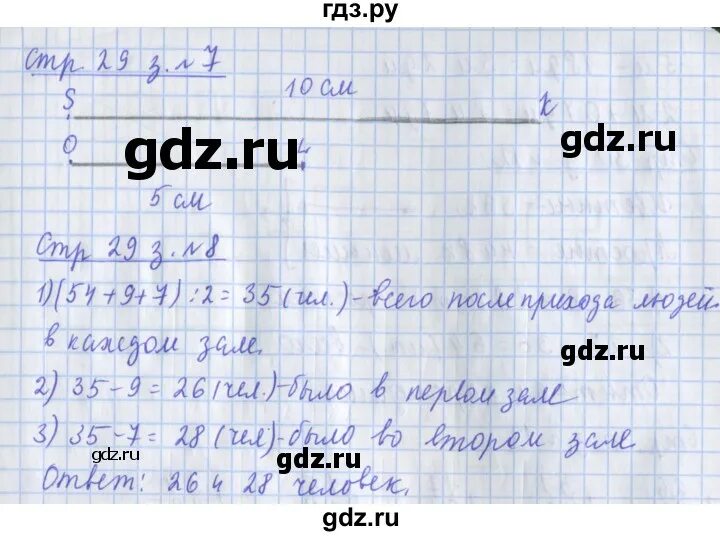 гдз.ру
Стр 29 з. №7
10 см
S K
gdz.ru
O 4
gdz.ru
5 см
Стр 29 з. №8
1) (54+9+7) : 2 = 35 (чел.) - всего после прихода людей
в каждом зале.
gdz.ru
2) 35 - 9 = 26 (чел.) - было в первом зале
3) 35 - 7 = 28 (чел) - было во втором зале
gdz.ru
gdz.ru
gdz.ru
Ответ: 26 и 28 человек.
gdz.ru